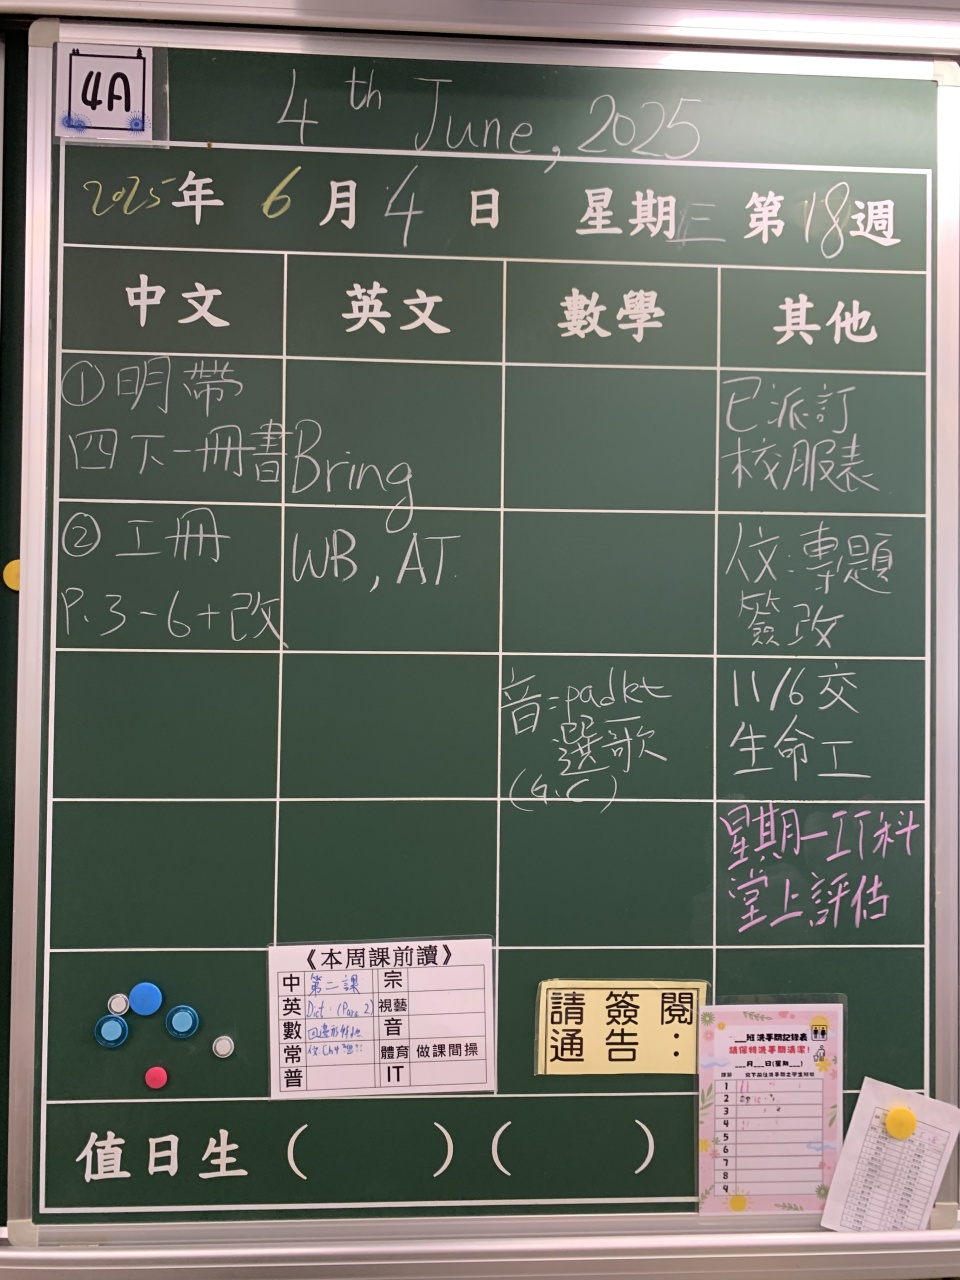 4A
4th June, 2025
2025年 6月 4日 星期三 第18週
中文 英文 數學 其他
①明帶
四下一冊書
②工冊
P.3-6+改
Bring
WB, AT
音=padlet
選歌
(G.C)
已派訂
校服表
專題
簽改
11/6交
生命工
星期一IT科
堂上評估
《本周課前讀》
中 第二課 宗
英 Dict. 視藝
數 音
常 體育 做課間操
普 IT
請簽閱
通告：
班洗手間記錄表
請保持洗手間清潔！
___月___日(星期___)
1
2
3
4
5
6
7
8
9
值日生 ( ) ( )